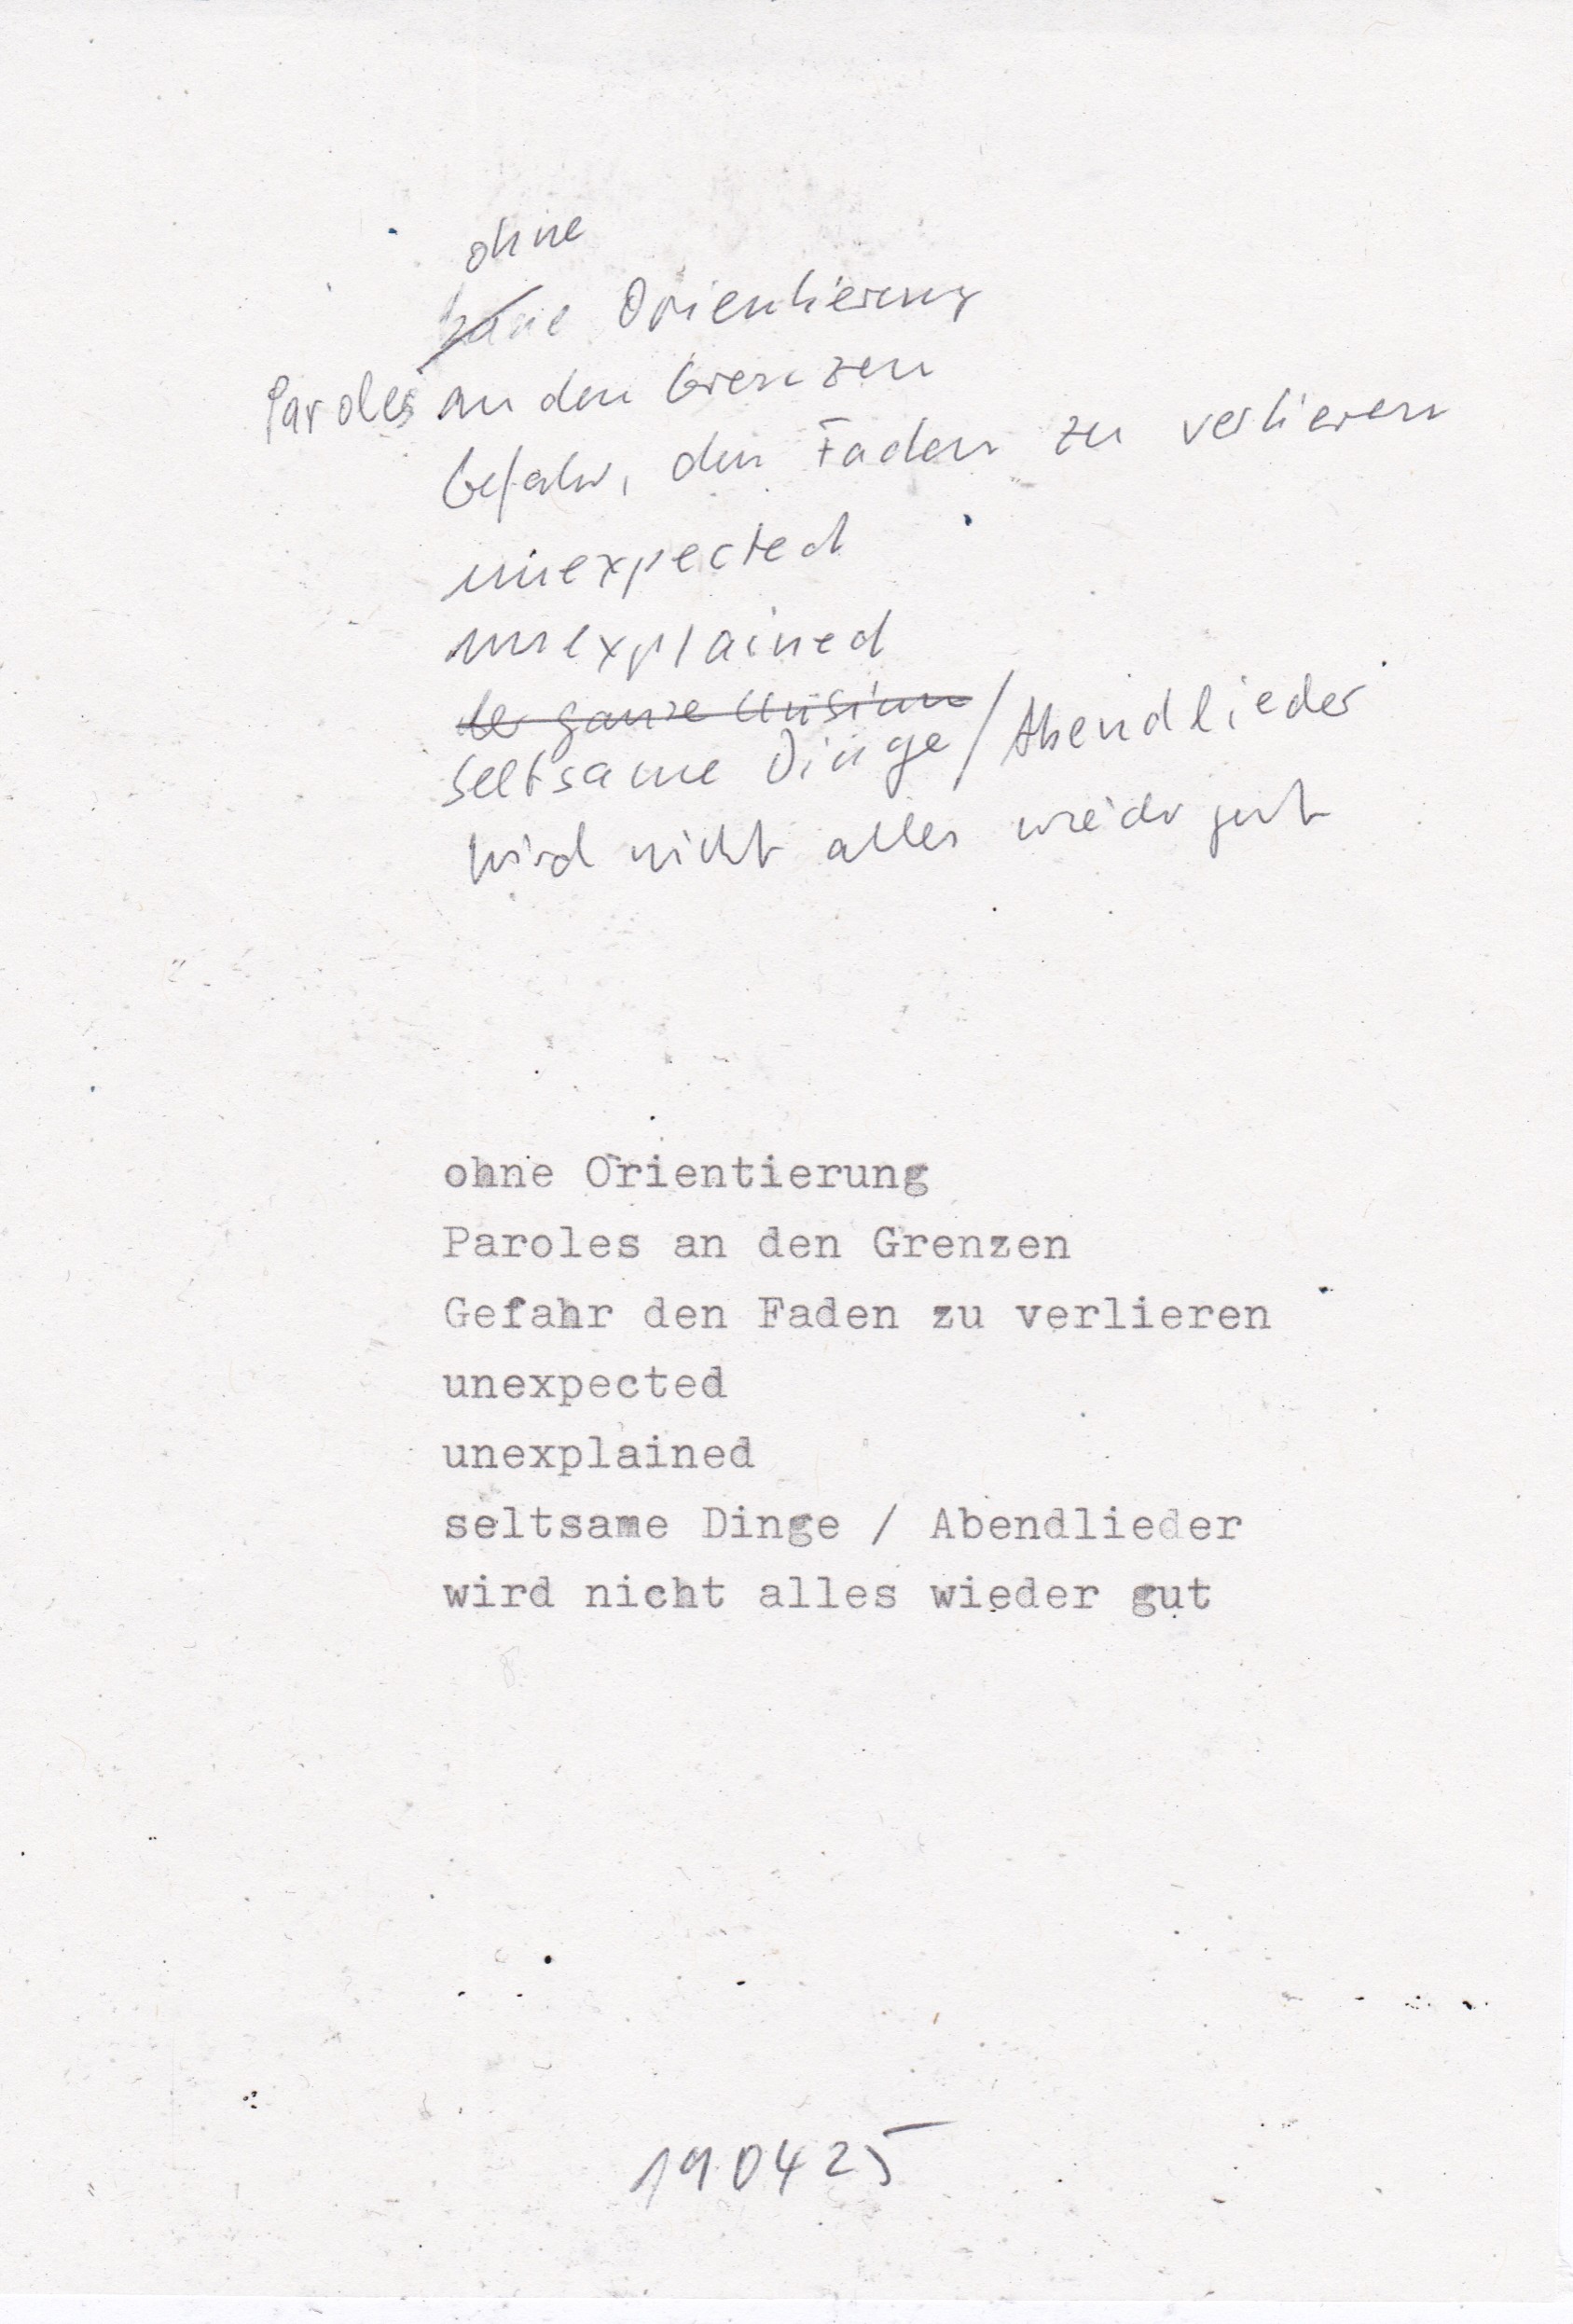 ohne
Orientierung
Paroles an den Grenzen
Gefahr, den Faden zu verlieren
unexpected
unexplained
der ganze Unsinn
seltsame Dinge / Abendlieder
wird nicht alles wieder gut
ohne Orientierung
Paroles an den Grenzen
Gefahr den Faden zu verlieren
unexpected
unexplained
seltsame Dinge / Abendlieder
wird nicht alles wieder gut
190425